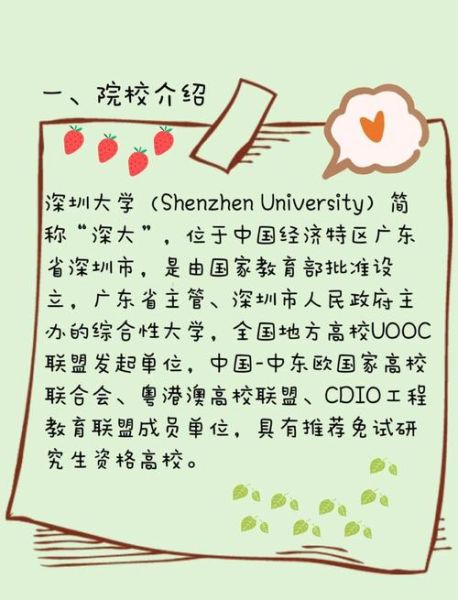 一、院校介绍
深圳大学（Shenzhen University）简
称“深大”，位于中国经济特区广东
省深圳市，是由国家教育部批准设
立，广东省主管、深圳市人民政府主
办的综合性大学，全国地方高校UOOC
联盟发起单位，中国-中东欧国家高校
联合会、粤港澳高校联盟、CDIO工程
教育联盟成员单位，具有推荐免试研
究生资格高校。